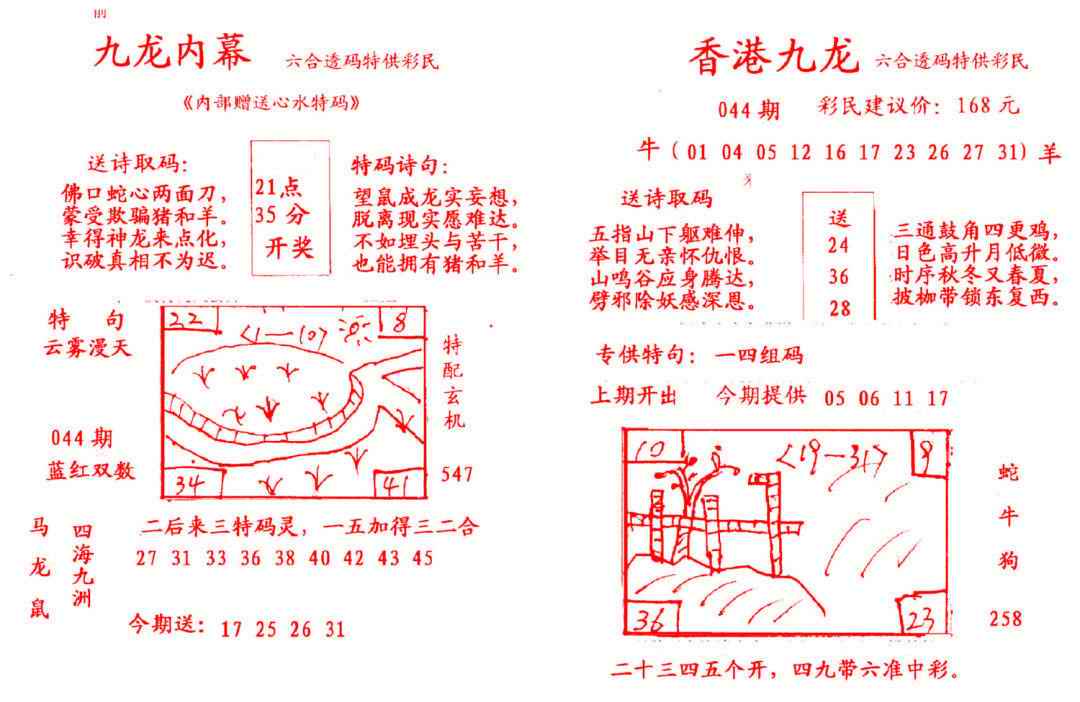 九龙内幕 六合透码特供彩民
《内部赠送心水特码》
送诗取码：
佛口蛇心两面刀，
蒙受欺骗猪和羊。
幸得神龙来点化，
识破真相不为迟。
21点
35分
开奖
特码诗句：
望鼠成龙实妄想，
脱离现实愿难达。
不如埋头与苦干，
也能拥有猪和羊。
特 句
云雾漫天
044期
蓝红双数
22
<1—10>
8
34
41
特配玄机
547
马龙鼠
四海九洲
二后来三特码灵，一五加得三二合
27 31 33 36 38 40 42 43 45
今期送：17 25 26 31
香港九龙 六合透码特供彩民
044期 彩民建议价：168元
牛（01 04 05 12 16 17 23 26 27 31）羊
送诗取码
五指山下躯难伸，
举目无亲怀仇恨。
山鸣谷应身腾达，
劈邪除妖感深恩。
送
24
36
28
三通鼓角四更鸡，
日色高升月低微。
时序秋冬又春夏，
披枷带锁东复西。
专供特句：一四组码
上期开出 今期提供 05 06 11 17
10
<19—31>
36
23
蛇
牛
狗
258
二十三四五个开，四九带六准中彩。